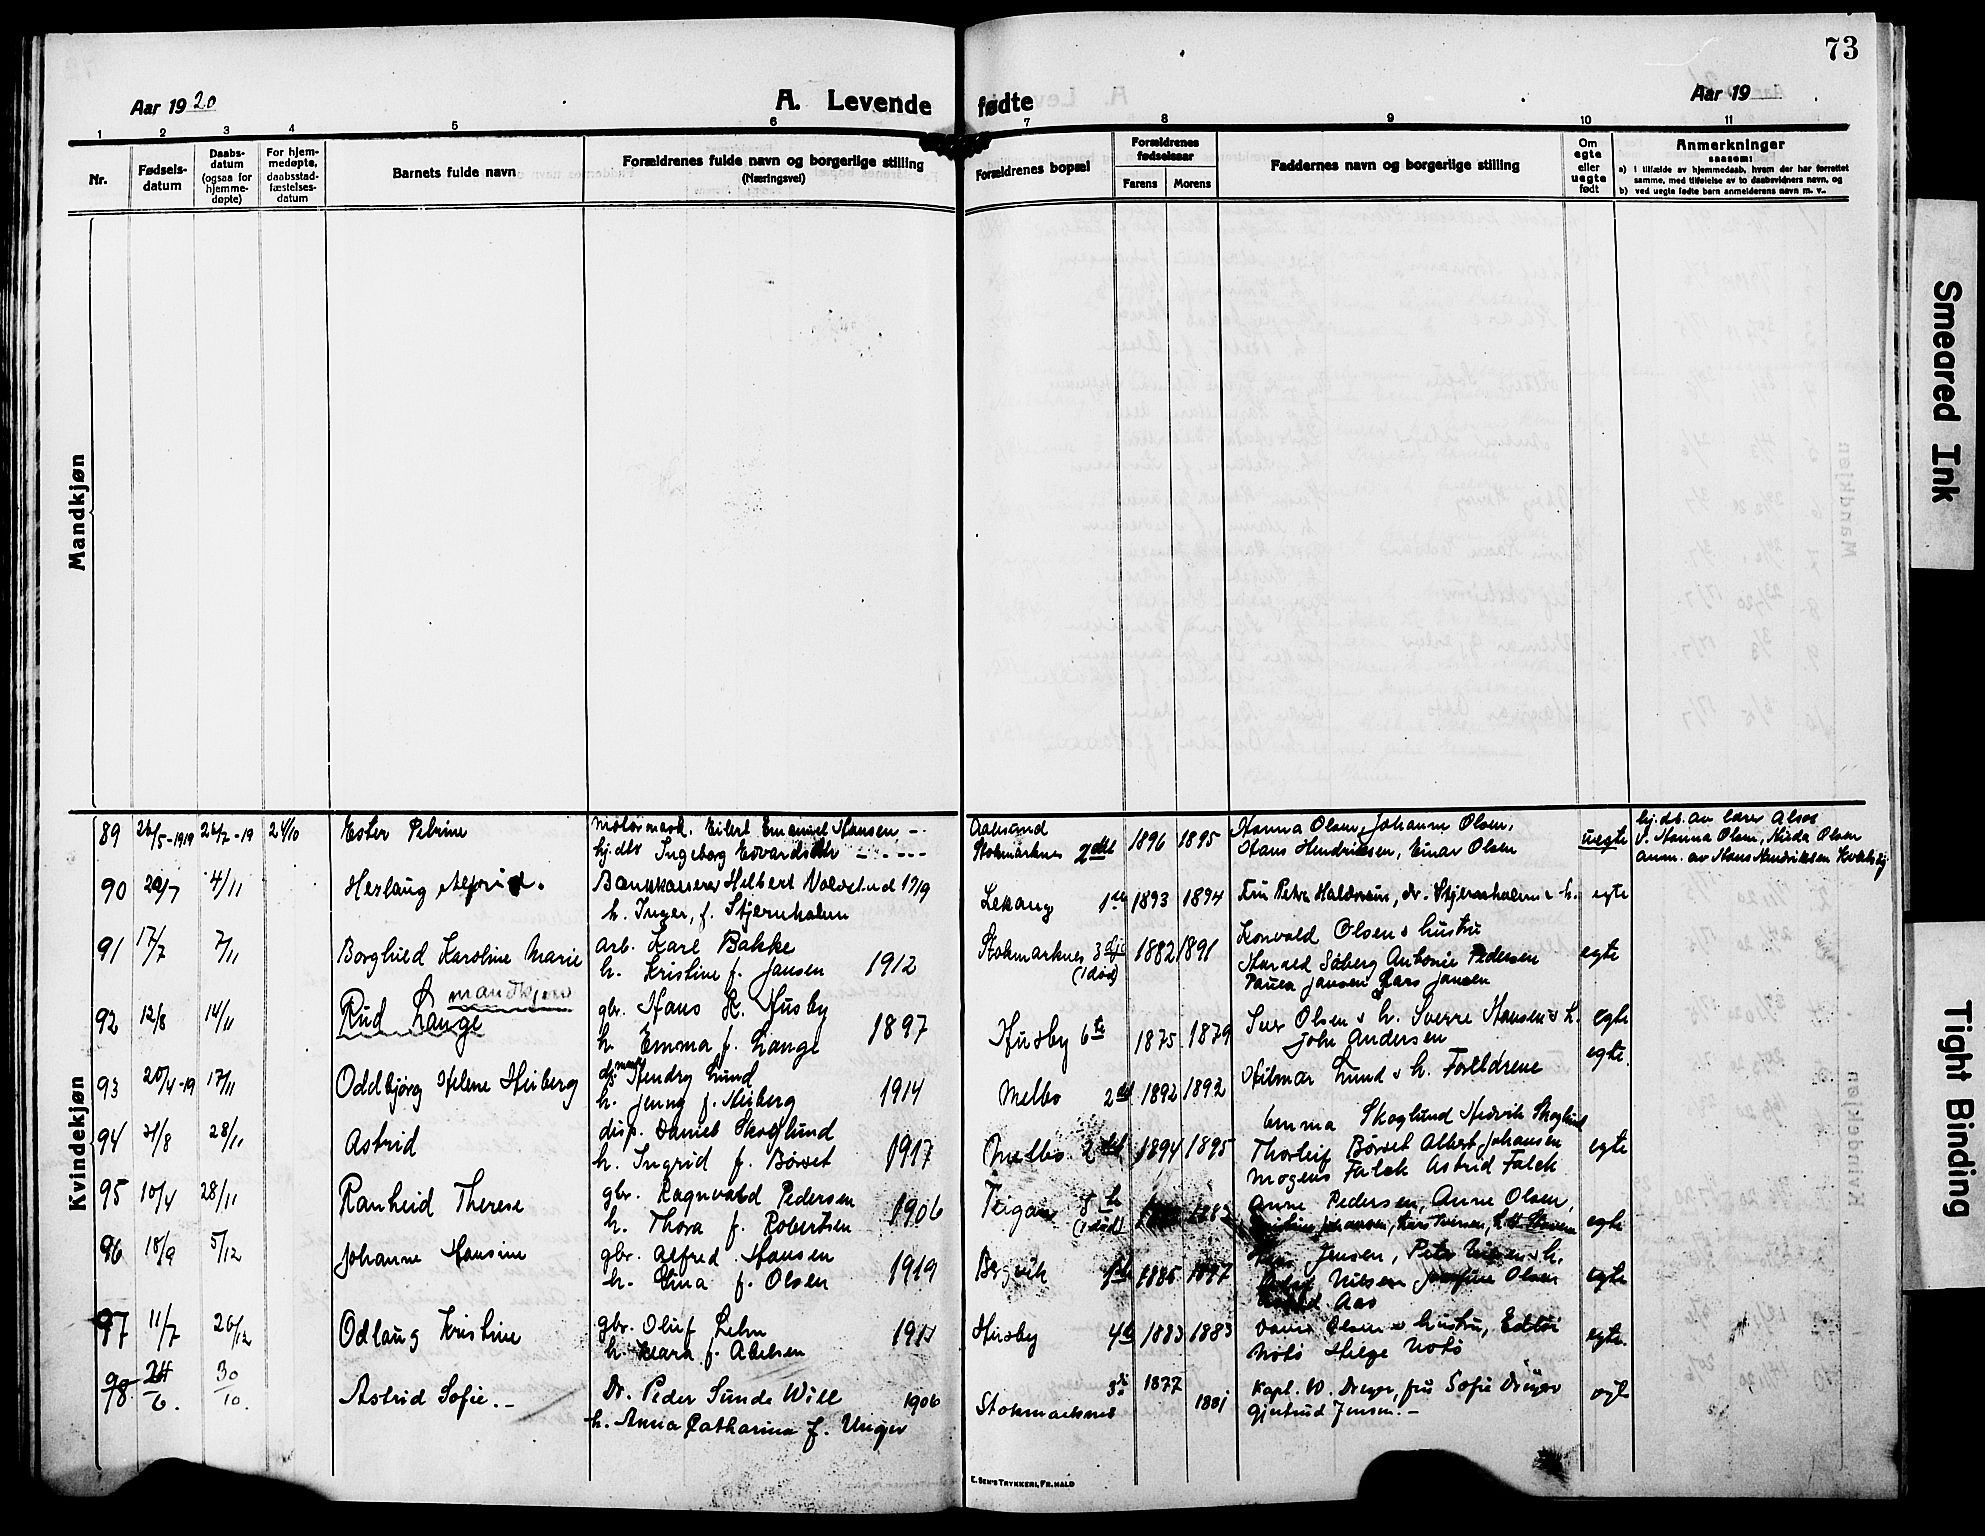 73
Aar 1920
A. Levende fødte
Aar 19
1 2 3 4 5 6 7 8 9 10 11
Nr.
Fødsels-
datum
Daabs-
datum
(ogsaa for
hjemme-
døpte)
For hjem-
medøpte,
daabsstad-
fæstelses-
datum
Barnets fulde navn
Forældrenes fulde navn og borgerlige stilling
(Næringsvei)
Forældrenes bopæl
Forældrenes
fødselsaar
Farens Morens
Faddernes navn og borgerlige stilling
Om
egte
eller
uegte
født
Anmerkninger
saasom:
a) i tilfælde av hjemmedaab, hvem der har forrettet
samme, med tilføielse av to daabsvidners navn, og
b) ved uegte fødte barn anmelderens navn m. v.
Mandkjøn
Kvindekjøn
89 26/5-1919 26/7-19 24/10 Ester Petrine
motormask. Eilert Emanuel Hansen
hj.dtr Ingeborg Edvardsdtr
Aalesund
Stokmarknes 2det 1896 1895
Hanna Olsen, Johanne Olsen,
Hans Hendriksen, Einar Olsen
uegte
hj.db. av lærer Alsos
v. Hanna Olsen, Hilda Olsen
anm. av Hans Hendriksen
90 4/11 Herlaug
Bankkasserer Helbert 1919
h. Inger, f. Stjernholm
Lekang 1ste 1893 1894
Fru Petra dr. Stjernholm & h. egte
91 17/7 7/11 Borghild Karoline Marie
arb. Karl Bakke
h. Kristine f. Jansen 1912
Stokmarknes 3dje (1 død) 1882 1891
Konrald Olsen & hustru
Harald Søberg Antonie Pedersen
Jansen Lars Jansen
egte
92 12/8 14/11 Rud Lange mandkjøn
gbr. Hans K. Husby
h. Emma f. Lange 1897
Husby 6te 1875 1879
Olsen & h. Sverre Hansen & h.
John Andersen
egte
93 20/4-19 17/11 Oddbjørg Helene Hiberg
Hendry Lund
h. Jenny f. Hiberg 1914
Melbo 2det 1892 1892
Hilmar Lund & h. Forældrene
egte.
94 21/8 28/11 Astrid
disp. Daniel Skoglund
h. Ingrid f. Børset 1917
Melbo 2det 1894 1895
Emma Skoglund Hedvik Skoglund
Thorleif Børset Albert Johansen
Mogens Falck Astrid Falck
egte
95 10/4 28/11 Ranheid Therese
gbr. Ragnvald Pedersen
h. Thora f. Robertsen 1906
Teigan 8de (1 død)
Anne Pedersen, Anne Olsen,
egte
96 18/9 5/12 Johanne Hansine
gbr. Alfred Hansen
h. Lina f. Olsen 1919
Bergvik 1ste
Jensen,
Nielsen Josefine Olsen
Aas
egte
97 11/7 26/12 Odlaug Kristine
gbr. Oluf Lehn
h. Klara f. Abelsen
Husby 4de 1883 1883
Olsen & hustru,
Helge
egte.
98 24/6. 30/10. Astrid Sofie.
Dr. Peder Sunde Will 1906
h. Anna Catharina f. Unger
Stokmarknes 3die 1877 1881
Kapt. W. Dreyer, fru Sofie Dreyer
Gjertrud Jensen.
egte
E. SEM'S TRYKKERI, FR.HALD
Smeared Ink
Tight Binding